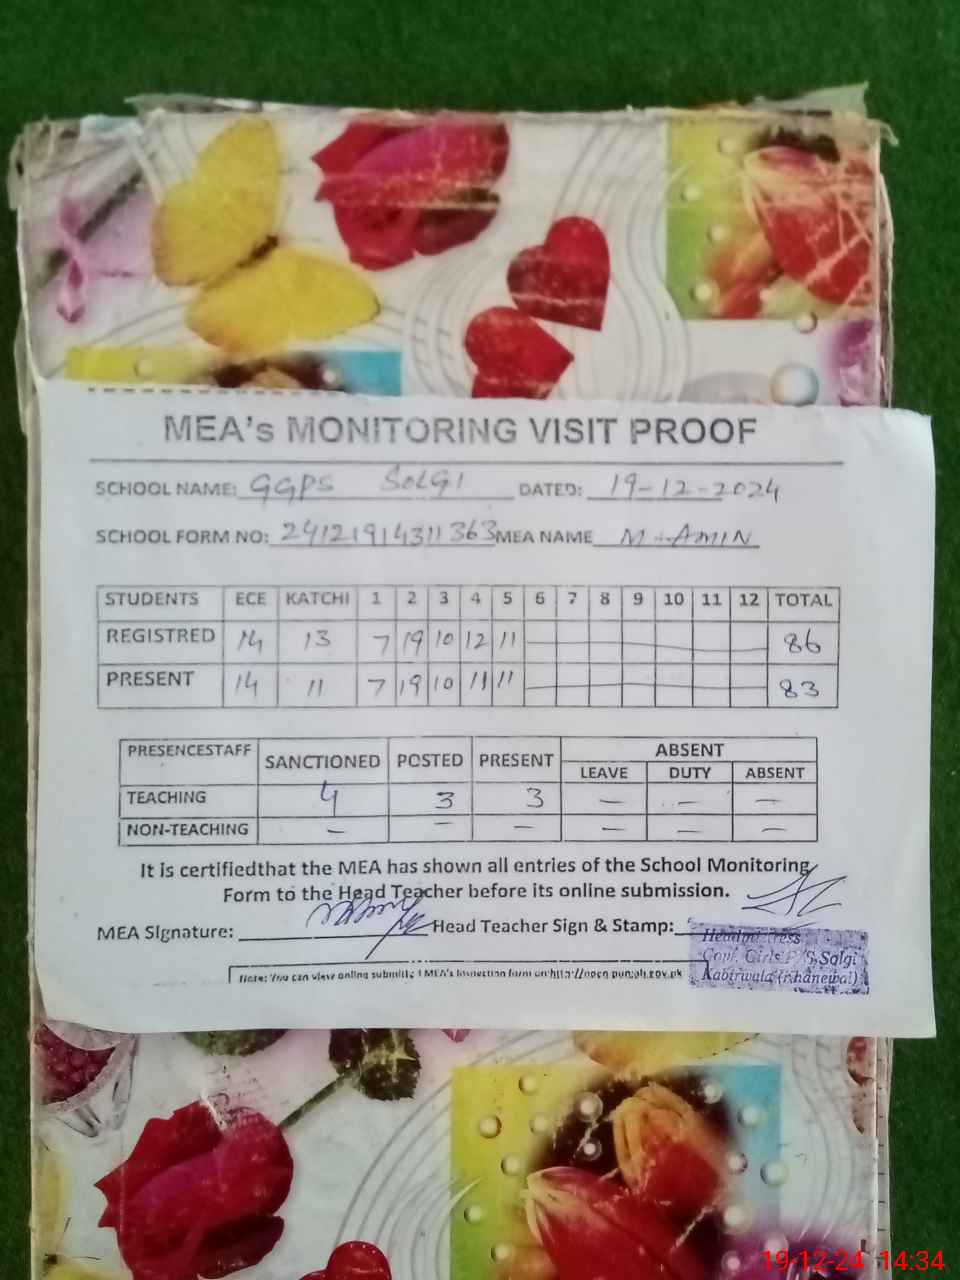 MEA's MONITORING VISIT PROOF
SCHOOL NAME: GGPS SOLGI DATED: 19-12-2024
SCHOOL FORM NO: 24121914311363 MEA NAME M. AMIN
STUDENTS ECE KATCHI 1 2 3 4 5 6 7 8 9 10 11 12 TOTAL
REGISTRED 14 13 7 19 10 12 11 86
PRESENT 14 11 7 19 10 11 11 83
PRESENCESTAFF SANCTIONED POSTED PRESENT ABSENT
LEAVE DUTY ABSENT
TEACHING 4 3 3 — — —
NON-TEACHING — — — — — —
It is certifiedthat the MEA has shown all entries of the School Monitoring
Form to the Head Teacher before its online submission.
MEA Signature: Head Teacher Sign & Stamp:
Headmistress
Govt. Girls P/S Solgi
Kabirwala (Khanewal)
Note: You can view online submitted MEA's Inspection form on:http://open.punjab.gov.pk
19-12-24 14:34